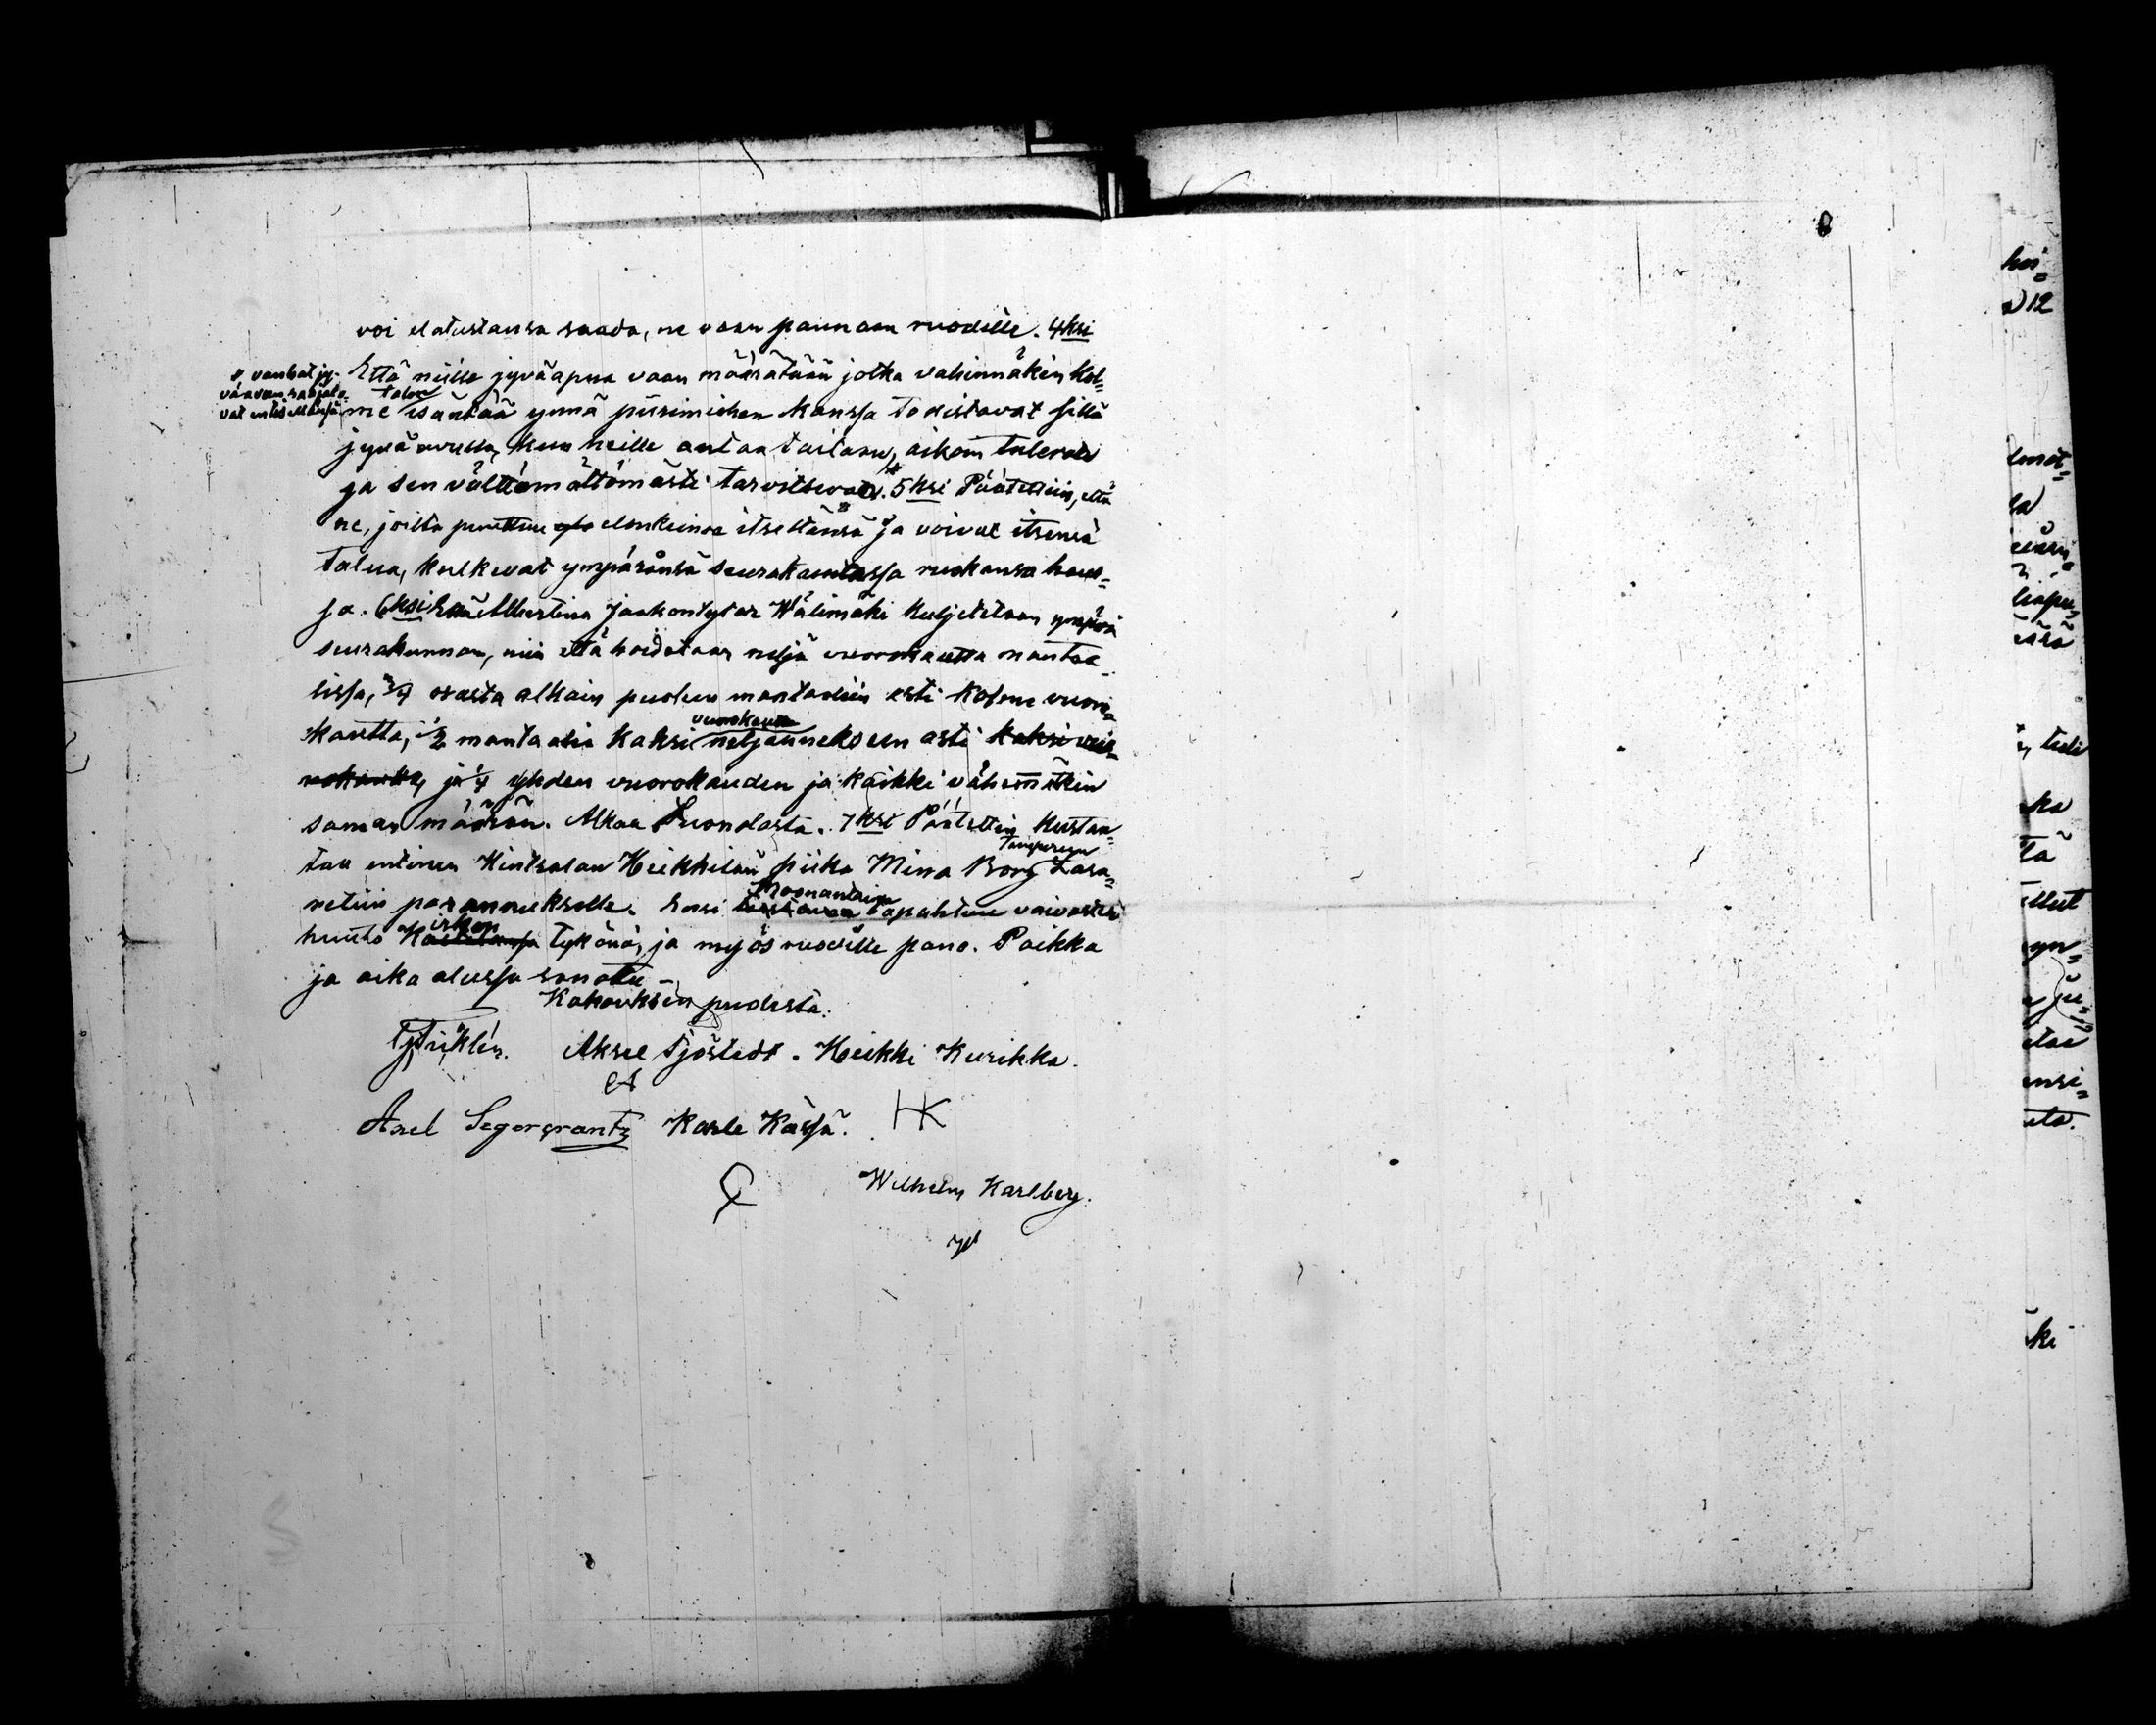 voi elatustansa saada, ne vaan pannaan ruodille. 4ksi
Että niille jyväapua vaan määrätään jotka vähinnäkin kol=
vanhat jy-
talon
me isäntää ynnä piirimiehen kanssa todistavat sillä
jyväavulla, kun heille antaa taitaan, aikoin tulevat
ja sen välttämättömästi tarvitsevat. 5ksi Päätettiin, että
ne, joilta puuttuu elonkeinoa itsestänsä ja voivat itsensä
talua, kulkevat ympärinsä seurakunnassa ruokansa haus=
sa. 6ksi Albertina Jaakontytär Wälimäki kuljetetaan ympäri
seurakunnan, niin että hoidetaan neljä vuorokautta mantaa-
lissa, 3/4 osasta alkain puoleen mantaaliin asti kolme vuoro=
vuorokautta
kautta, 1/2 mantaalia kaksi neljännekseen asti kaksi vuo=
rokautta, ja 1/4 yhden vuorokauden ja kaikki vähemmätkin
saman määrän. Alkaa Suondasta. 7ksi Päätettiin kustan=
Tampereen
taa entinen Hintsalan Heikkilän piika Mina Borg Lasa=
Moonantaina
retiin parannukselle. Ensi tapahtuu vaivasten
irkon
huuto K tykönä, ja myös ruodille pano. Paikka
ja aika alussa sanottu –
Kokouksen puolesta:
Aksel Sjöstedt. Heikki Kurikka.
Axel Segercrantz Kalle Kässä. HK
Wilhelm Karlberg.
hoi=
12
la
tuli
ka
tä
llut
yn=
etae
ensi=
eta.
ki